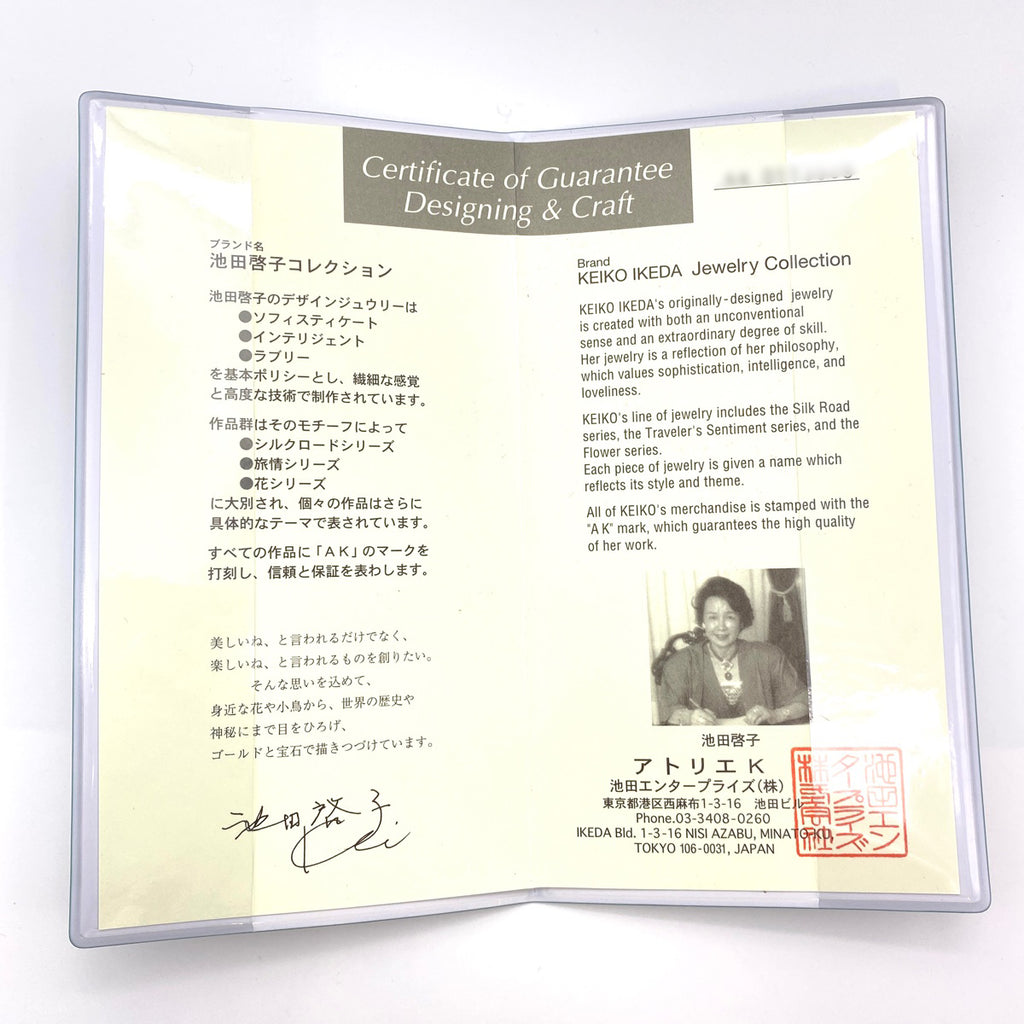 Certificate of Guarantee
Designing & Craft
ブランド名
池田啓子コレクション
池田啓子のデザインジュウリーは
●ソフィスティケート
●インテリジェント
●ラブリー
を基本ポリシーとし、繊細な感覚
と高度な技術で制作されています。
作品群はそのモチーフによって
●シルクロードシリーズ
●旅情シリーズ
●花シリーズ
に大別され、個々の作品はさらに
具体的なテーマで表されています。
すべての作品に「AK」のマークを
打刻し、信頼と保証を表わします。
美しいね、と言われるだけでなく、
楽しいね、と言われるものを創りたい。
そんな思いを込めて、
身近な花や小鳥から、世界の歴史や
神秘にまで目をひろげ、
ゴールドと宝石で描きつづけています。
池田啓子
Brand
KEIKO IKEDA Jewelry Collection
KEIKO IKEDA's originally-designed jewelry
is created with both an unconventional
sense and an extraordinary degree of skill.
Her jewelry is a reflection of her philosophy,
which values sophistication, intelligence, and
loveliness.
KEIKO's line of jewelry includes the Silk Road
series, the Traveler's Sentiment series, and the
Flower series.
Each piece of jewelry is given a name which
reflects its style and theme.
All of KEIKO's merchandise is stamped with the
"AK" mark, which guarantees the high quality
of her work.
池田啓子
アトリエK
池田エンタープライズ(株)
東京都港区西麻布1-3-16 池田ビル
Phone.03-3408-0260
IKEDA Bld. 1-3-16 NISI AZABU, MINATO-KU,
TOKYO 106-0031, JAPAN
池田エン
タープライズ
株式会社